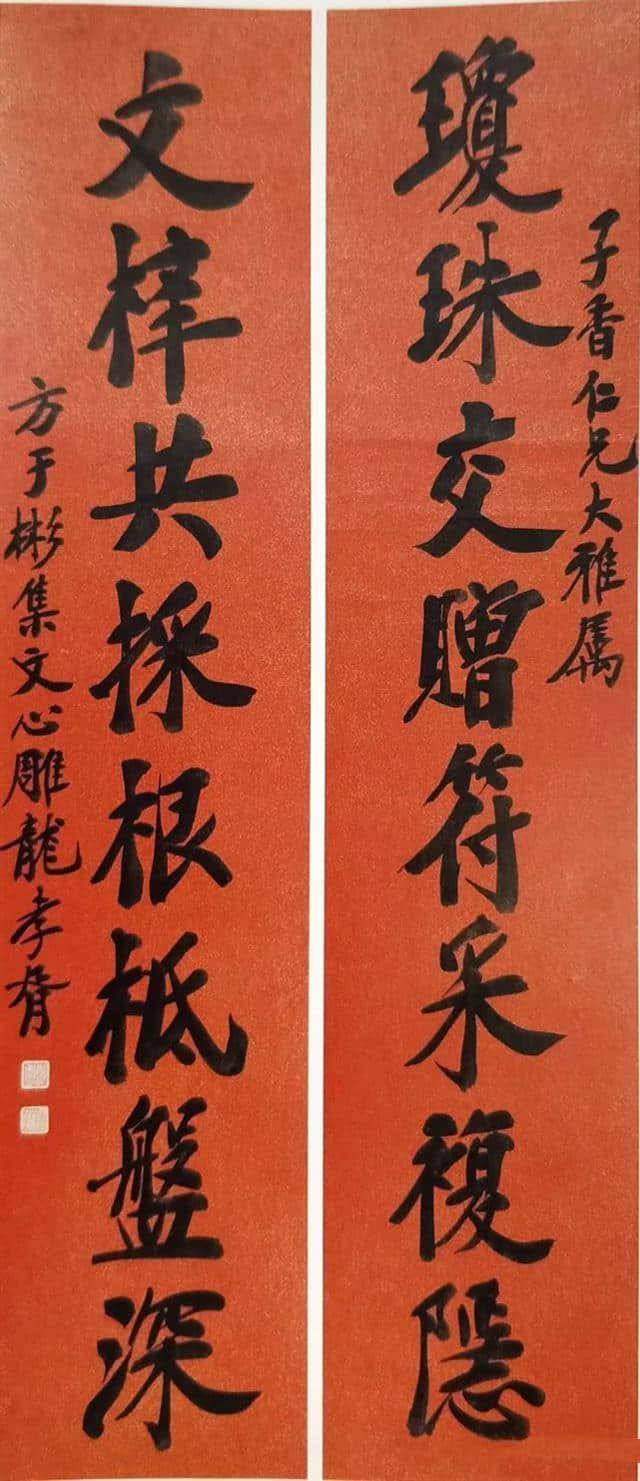 子香仁兄大雅属
瓊珠交贈符采複隱
文梓共採根柢盤深
方于彬集文心雕龍孝胥